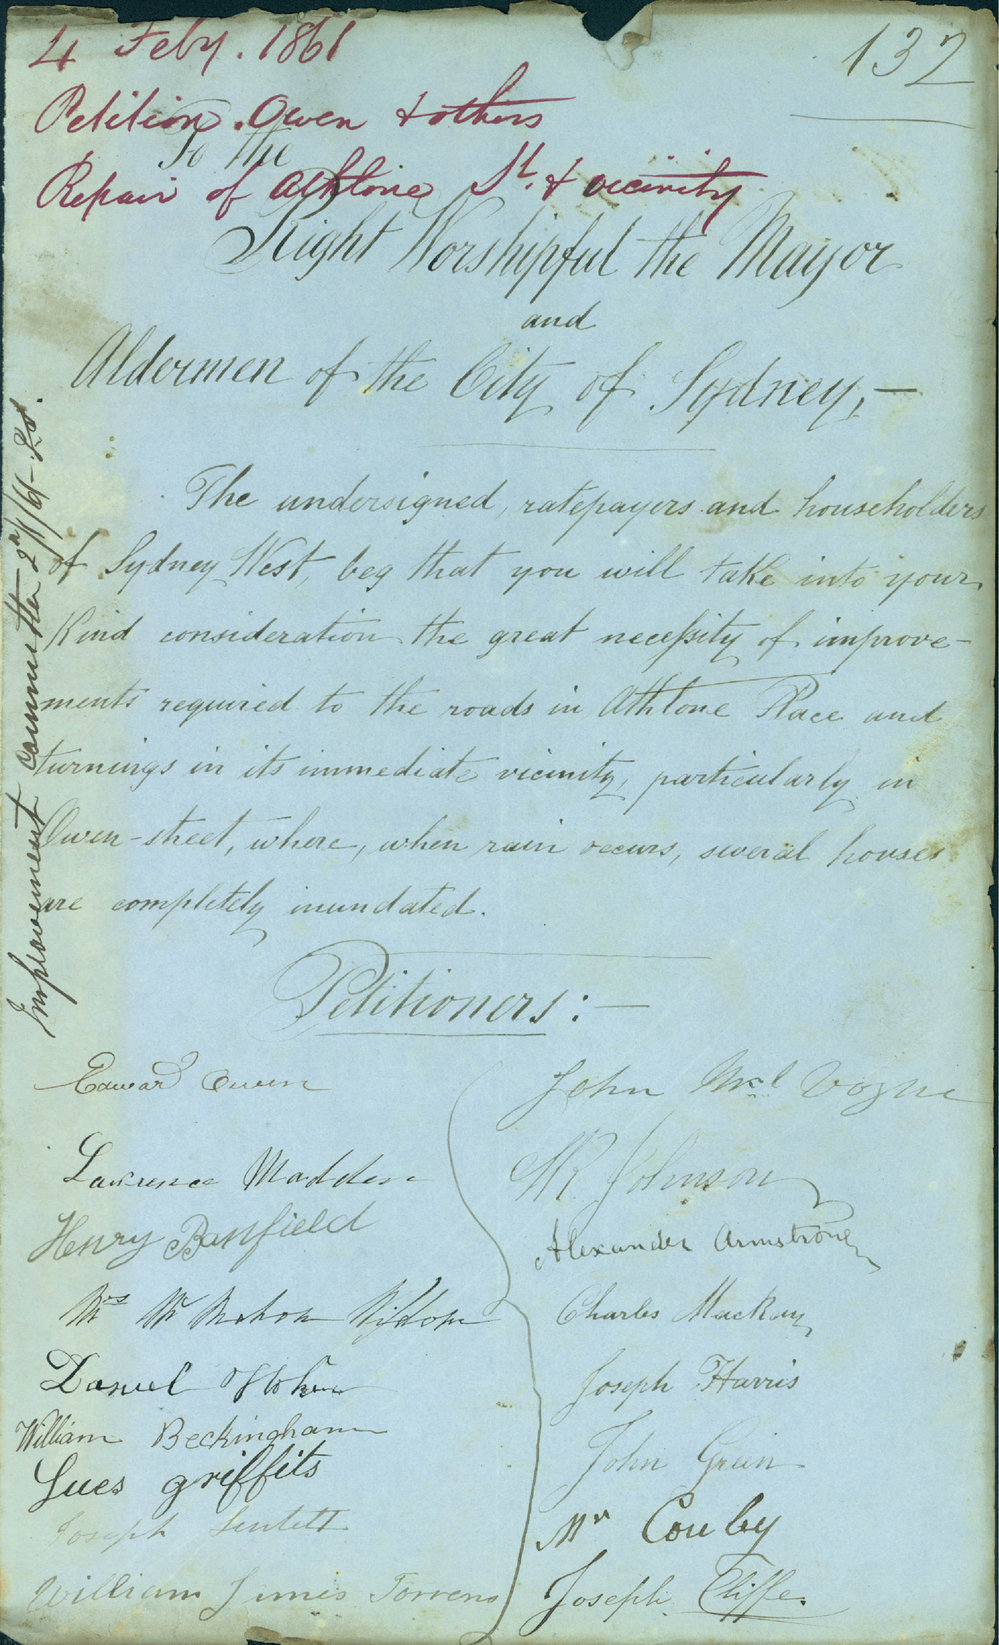 4 Feby. 1861
132
Petition. Owen & others
To the
Repair of Athlone St. & vicinity
Right Worshipful the Mayor
and
Aldermen of the City of Sydney,—
The undersigned, ratepayers and householders
of Sydney West, beg that you will take into your
kind consideration the great necessity of improve-
ments required to the roads in Athlone Place and
turnings in its immediate vicinity, particularly in
Owen-street, where, when rain occurs, several houses
are completely inundated.
Improvement Committee
Petitioners:—
Edward Owen
Lawrence Madden
Henry Banfield
Mrs
Daniel
William Beckingham
griffits
Joseph
William James Torrens
John
Johnson
Alexander Armstrong
Charles MacKay
Joseph Harris
John
Mr
Joseph Cliffe.